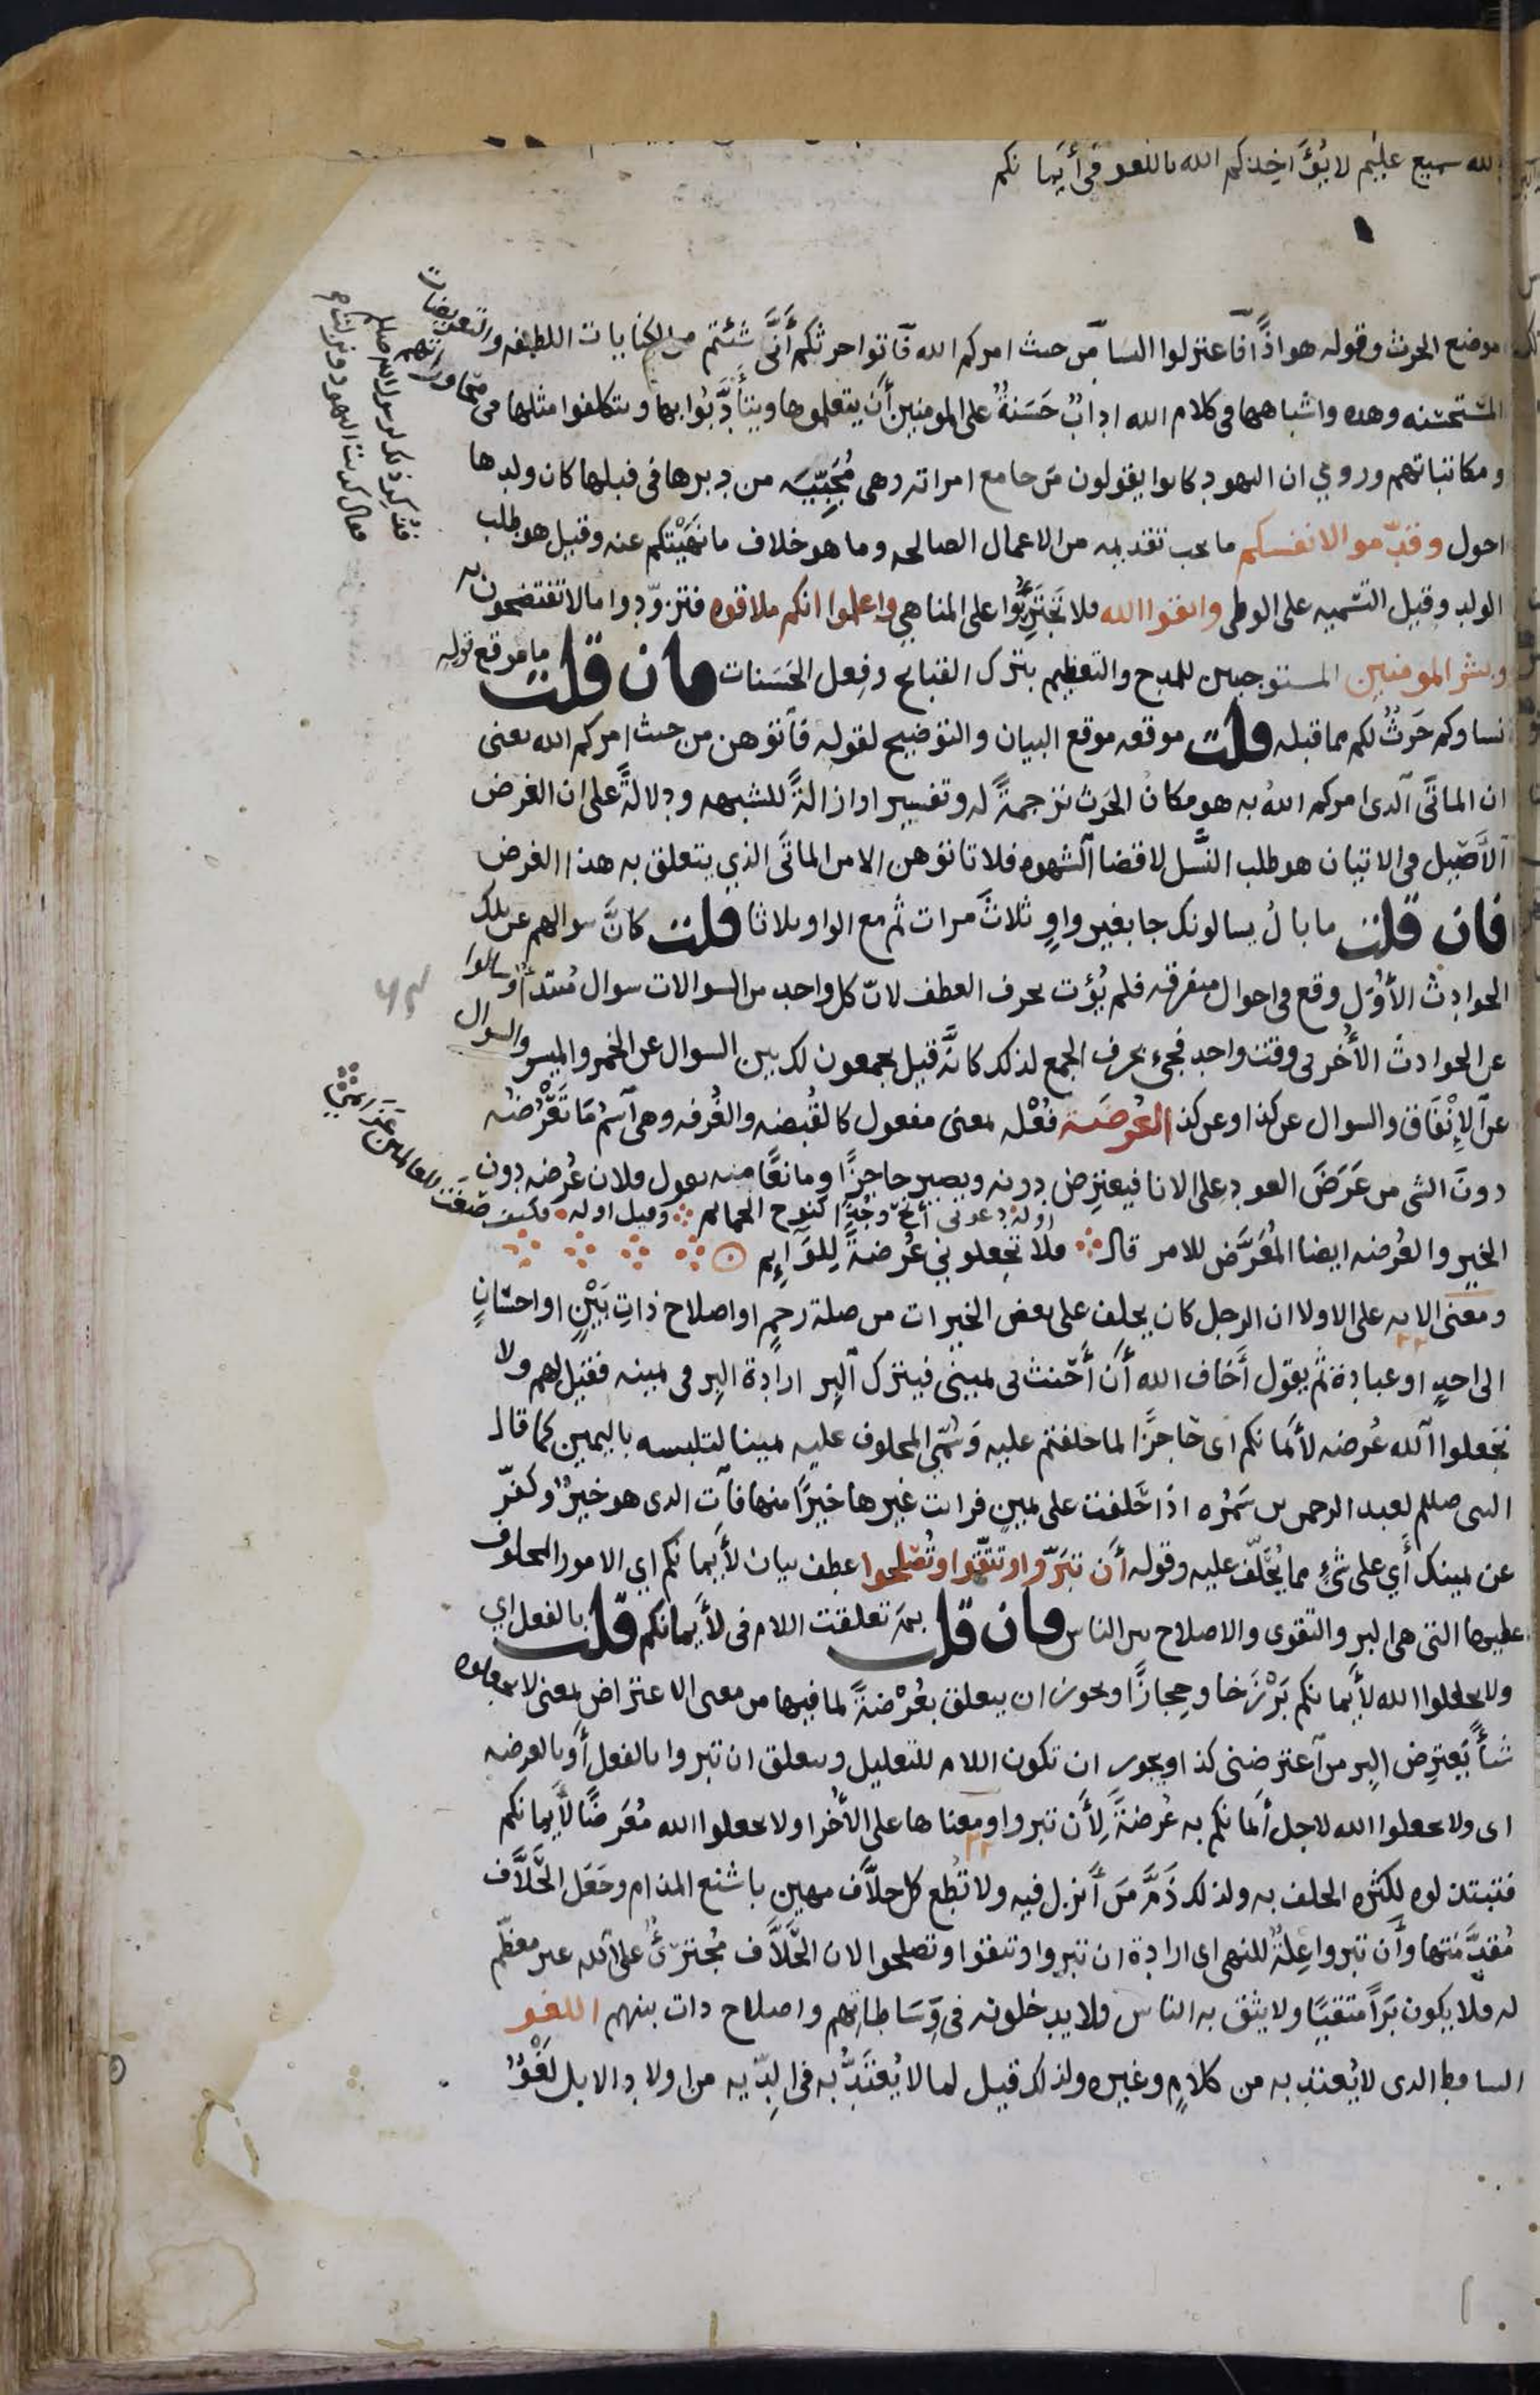 لله سميع عليم لا يُؤَاخِذكم الله باللغو في أَيمانكم
موضع الحرث وقوله هو اذًا فاعتزلوا النسا من حيث امركم الله فأتوا حرثكم أَنَّى شئتم من الكنايات اللطيفه والتعريضات
المستحسنه وهذه واشباهها فى كلام الله ادابٌ حَسَنةٌ على المومنين أن يتعلموها ويتأَدَّبُوا بها ويتكلفوا مثلها فى محاوراتهم
ومكاتباتهم وروي ان اليهود كانوا يقولون من جامع امراته وهى مُجَبِّيَه من دبرها فى قبلها كان ولدها
احول وقدّموا لانفسكم ما يجب تقديمه من الاعمال الصالحه وما هو خلاف ما نَهَيْتكم عنه وقيل هو طلب
الولد وقيل التسميه على الوطى واتقوا الله فلا تَجْتَرِئُوا على المناهي واعلموا انكم ملاقوه فتزوّدوا ما لا تفتضحون به
وبشر المومنين المستوجبين للمدح والتعظيم بترك القبائح وفِعل الحَسَنات فان قلت ما موقع قوله
نساوكم حَرثٌ لكم مما قبله قلت موقعه موقع البيان والتوضيح لقوله فأتوهن من حيث امركم الله يعنى
ان الماتَى الذى امركم اللهُ به هو مكان الحَرث ترجمةً له وتفسيرا او ازالةً للشبهه ودلالةً على ان الغرض
الأَصيل فى الاتيان هو طلب النَّسل لا قضا الشهوه فلا تاتوهن الا من الماتَى الذي يتعلق به هذا الغرض
فان قلت ما بالُ يسالونك جا بغير واوٍ ثلاثَ مرات ثم مع الواو ثلاثا قلت كانَّ سوالهم عن تلك
الحوادث الأُوَل وقع فى احوال متفرقه فلم يُؤت بحرف العطف لانّ كل واحد من السوالات سوال مُبتدأٌ وسالوا
عن الحوادث الأُخَر فى وقت واحد فجىء بحرف الجمع لذلك كانَّه قيل يجمعون لك بين السوال عن الخمر والميسر والسوال
عن الإِنْفَاق والسوال عن كذا وعن كذا العُرضَة فُعْله بمعنى مفعول كالقُبضه والغُرفه وهى اسم ما تَعْرُضُه
دونَ الشى من عَرَضَ العود على الانا فيعترِض دونه ويصير حاجزًا ومانعًا منه يقول فلان عُرضه دون
اوله دعونى أَنُحْ وجْدًا كنوح الحمائم وقيل اوله
الخير والعُرضه ايضا المُعَرَّض للامر قال ولا تجعلونى عُرضةً لِلوَائِم
ومعنى الايه على الاولا ان الرجل كان يحلف على بعض الخيرات من صلة رحمٍ او اصلاح ذاتِ بَيْنٍ او احسَانٍ
الى احدٍ او عبادة ثم يقول أَخاف الله أَن أَحْنث فى يمينى فيترك البِر ارادة البِر فى يمينه فقيل لهم ولا
تجعلوا الله عُرضه لأَيمانكم اى حَاجزًا لما حلفتم عليه وسُمّىَ المحلوف عليه يمينا لتلبسه باليمين كما قال
النبى صلعم لعبد الرحمن بن سَمُره اذا حَلفت على يمين فرايت غيرها خيرًا منها فأت الذى هو خيرٌ وكفّر
عن يمينك أَي على شئٍ مما يُحْلَف عليه وقوله أن تبَرّوا وتتّقوا وتُصْلحوا عطف بيان لأَيمانكم اي الامور المحلوف
عليها التى هى البر والتقوى والاصلاح بين الناس فان قلت بمَ تعلقت اللام فى لأَيمانكم قلت بالفعل اي
ولا تجعلوا الله لأَيمانكم بَرْزَخا وحِجازًا ويجوز ان يتعلق بعُرْضةً لما فيها من معنى الاعتراض بمعنى لا تجعلوه
شأً يَعترِض البِر من اعترضنى كذا ويجوز ان تكون اللام للتعليل ويتعلق ان تبروا بالفعل أَو بالعرضه
اى ولا تجعلوا الله لاجل أَيمانكم به عُرضةً لِأَن تبروا ومعناها على الأُخرا ولا تجعلوا الله مُعَرضًا لأَيمانكم
فتبتذلوه لكثره الحلف به ولذلك ذَمَّ مَن أَنزل فيه ولا تُطِع كل حلاَّف مهين باشنع المذام وجَعَل الحَلاَّف
مُقدِّمَتها وأَن تبروا عِلةٌ للنهى اى ارادة ان تبروا وتتقوا وتصلحوا لان الحَلاَّف مُجترئٌ على الله غير معظّم
له فلا يكون بَرًّا متقيًا ولا يثق به الناس فلا يدخلونه فى وَسَاطاتهم واصلاح ذات بينهم اللغو
الساقط الذى لا يُعتد به من كلامٍ وغيره ولذلك قيل لما لا يُعْتَدُّ به فى الدِّيه من اولاد الابل لَغْوٌ
فذُكر ذلك لرسول الله صلعم
فقال كذبت اليهود ونزلت